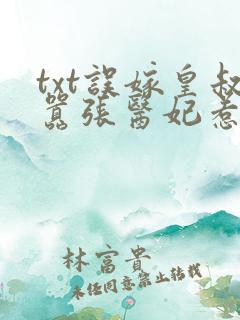 txt誤嫁皇叔
囂張醫妃惹
林富貴
未經同意禁止轉載